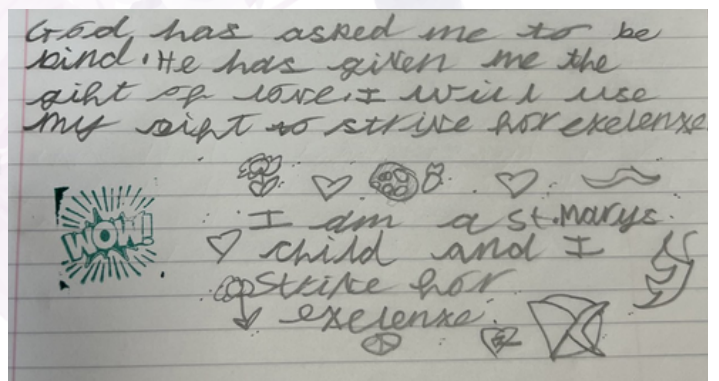 God has asked me to be
kind. He has given me the
gift of love. I will use
my gift to strive for exelenxe
WOW!
I am a st.Marys
child and I
strive for
exelenxe.